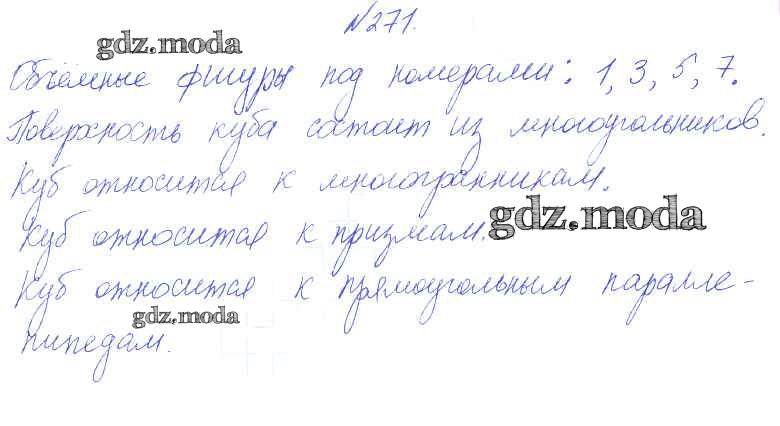 №271.
gdz.moda
Объёмные фигуры под номерами: 1, 3, 5, 7.
Поверхность куба состоит из многоугольников.
Куб относится к многогранникам.
gdz.moda
Куб относится к призмам.
Куб относится к прямоугольным паралле-
gdz.moda
пипедам.